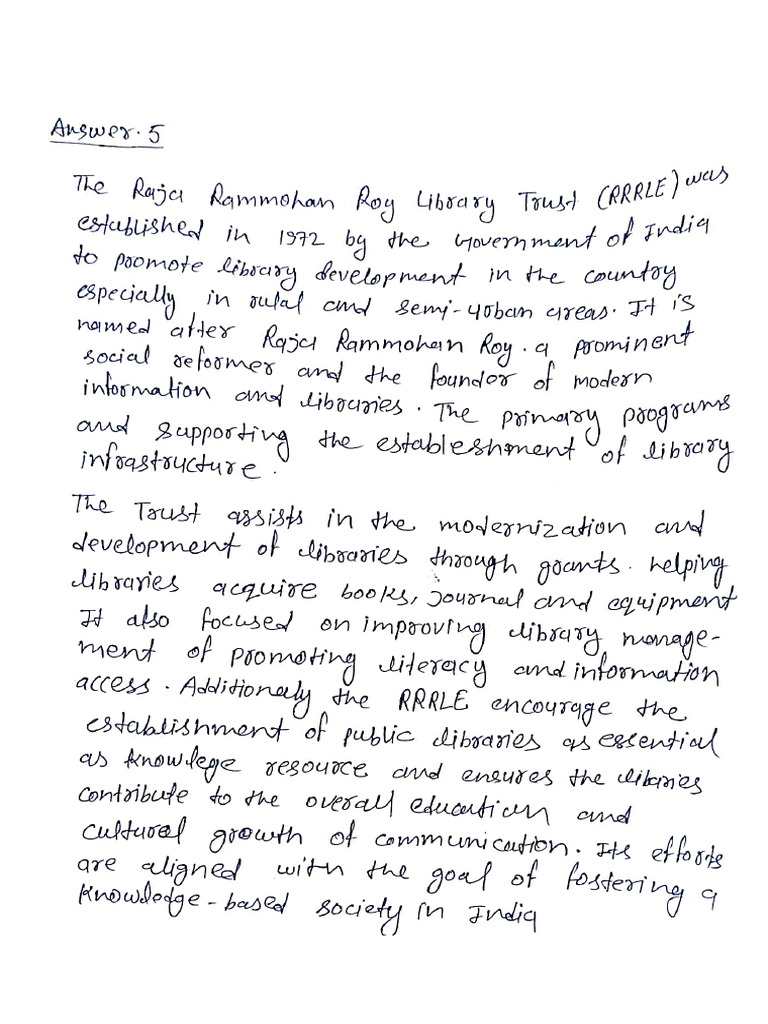 Answer. 5
The Raja Rammohan Roy Library Trust (RRRLE) was
established in 1972 by the Government of India
to promote library development in the country
especially in rural and semi-urban areas. It is
named after Raja Rammohan Roy. a prominent
social reformer and the founder of modern
information and libraries. The primary programs
and supporting the estableshment of library
infrastructure.
The Trust assists in the modernization and
development of libraries through grants. helping
libraries acquire books, journal and equipment
It also focused on improving library manage-
ment of promoting literacy and information
access. Additionaly the RRRLE encourage the
establishment of public libraries as essential
as knowlege resource and ensures the libaries
contribute to the overall education and
cultural growth of communication. Its efforts
are aligned with the goal of fostering a
knowledge-based society in India